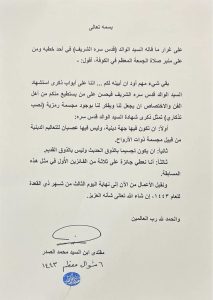 بسمه تعالى
على غرار ما قاله السيد الوالد (قدس سره الشريف) في أحد خطبه ومن
على منبر صلاة الجمعة المعظم في الكوفة، أقول:-
بقي شيء مهم أود ان أبينه لكم ... اننا على أبواب ذكرى استشهاد
السيد الوالد قدس سره الشريف فيحسن على من يستطيع منكم من أهل
الفن والاختصاص ان يجعل لنا ويفكر لنا بوجود مجسمة رمزية (نصب
تذكاري) تمثل ذكرى شهادة السيد الوالد قدس سره:
أولاً: ان تكون فيها جهة دينية، وليس فيها عصيان للتعاليم الدينية
من قبيل مجسمة ذوات الأرواح.
ثانياً: أن يكون تجسيماً بالذوق الحديث وليس بالذوق القديم.
ثالثاً: أننا نعطي جائزة على ثلاثة من الفائزين الأول في مثل هذه
المسابقة.
ونقبل الاعمال من الآن إلى نهاية اليوم الثالث من شهر ذي القعدة
للعام ١٤٤٣، إن شاء الله تعالى شأنه العزيز.
والحمد لله رب العالمين
مقتدى ابن السيد محمد الصدر
٦ شوال معظم ١٤٤٣